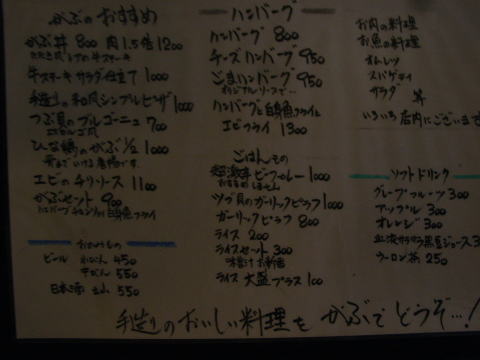 がぶのおすすめ
がぶ丼 800 肉1.5倍1200
牛ステーキ サラダ仕立て 1000
手造りの和風シンプルピザ 1000
つぶ貝のブルゴーニュ 700
ひな鶏のがぶ1/2 1000
エビのチリソース 1100
がぶセット 900
ハンバーグ チキンカツ 白身フライ
おのみもの
ビール 小びん 450
中びん 550
日本酒 立山 550
ハンバーグ
ハンバーグ 800
チーズハンバーグ 950
ごまハンバーグ 950
オリジナルソースで…
ハンバーグと白身魚フライと
エビフライ 1300
ごはんもの
超激辛ビーフカレー 1000
おすすめしません
つぶ貝のガーリックピラフ 1000
ガーリックピラフ 800
ライス 200
ライスセット 300
味噌汁 お新香
ライス 大盛プラス 100
お肉の料理
お魚の料理
オムレツ
スパゲティ
サラダ 丼
いろいろ店内にございます
ソフトドリンク
グレープフルーツ 300
アップル 300
オレンジ 300
血液サラサラ黒豆ジュース 3
ウーロン茶 250
手造りのおいしい料理を がぶで どうぞ…!